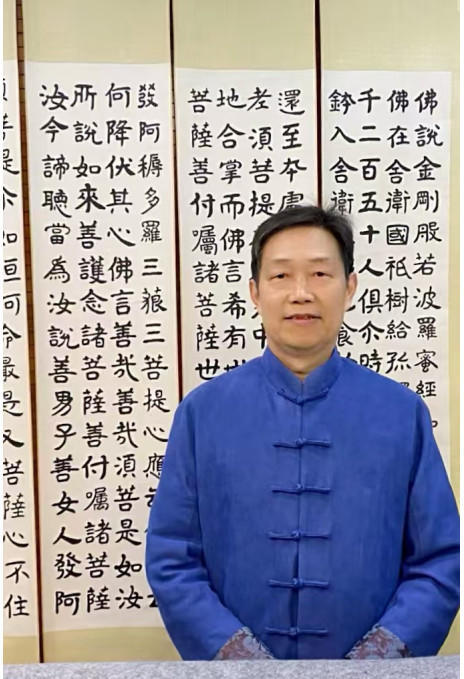 佛說金剛般若波羅蜜經
佛在舍衛國祇樹給孤
千二百五十人俱尒時
鉢入舍衛
食
還至夲處
老須菩提
中
地合掌而佛言希有世
菩薩善付囑諸菩薩世
發阿耨多羅三藐三菩提心應
何降伏其心佛言善哉善哉須菩是如汝
所說如來善護念諸菩薩善付囑諸菩薩
汝今諦聽當為汝說善男子善女人發阿
菩是尒如恒可命最是又菩薩心不住